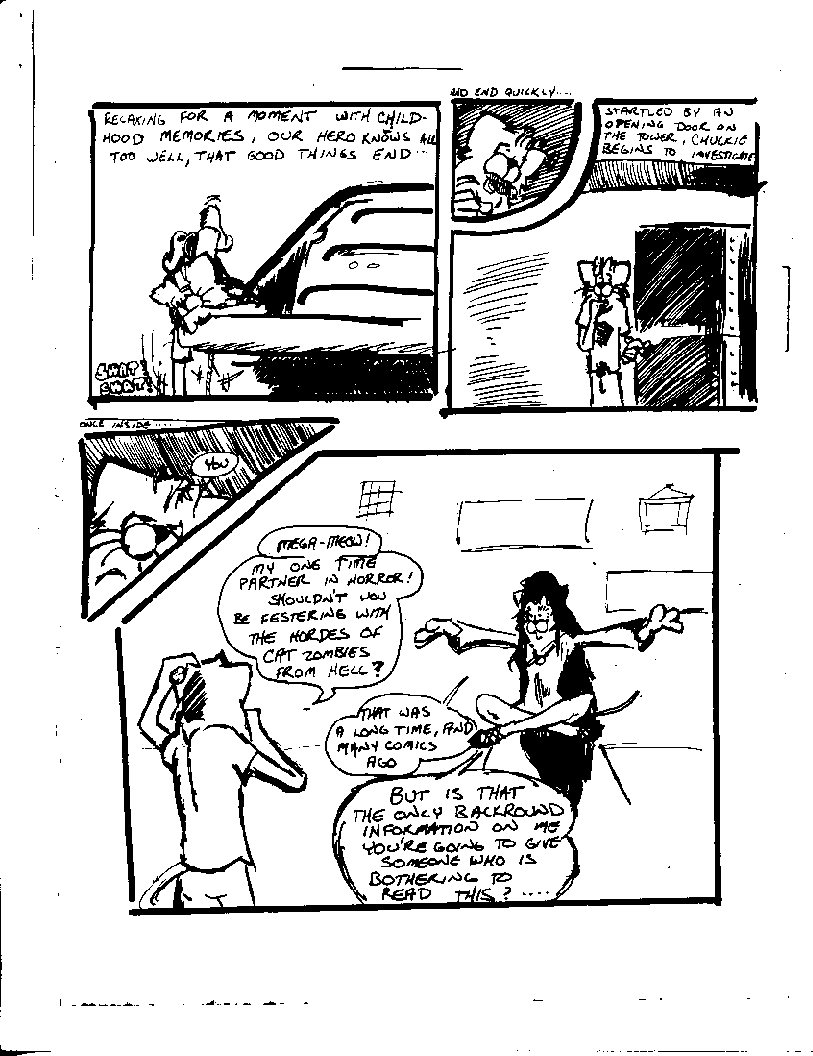 RELAXING FOR A MOMENT WITH CHILD-
HOOD MEMORIES, OUR HERO KNOWS ALL
TOO WELL, THAT GOOD THINGS END...
SWAT!
SWAT!
AND END QUICKLY....
STARTLED BY AN
OPENING DOOR ON
THE TOWER, CHUCKIE
BEGINS TO INVESTIGATE
ONCE INSIDE....
YOU
MEGA-MEOW!
MY ONE TIME
PARTNER IN HORROR!
SHOULDN'T YOU
BE FESTERING WITH
THE HORDES OF
CAT ZOMBIES
FROM HELL?
THAT WAS
A LONG TIME, AND
MANY COMICS
AGO
BUT IS THAT
THE ONLY BACKROUND
INFORMATION ON ME
YOU'RE GOING TO GIVE
SOMEONE WHO IS
BOTHERING TO
READ THIS?....